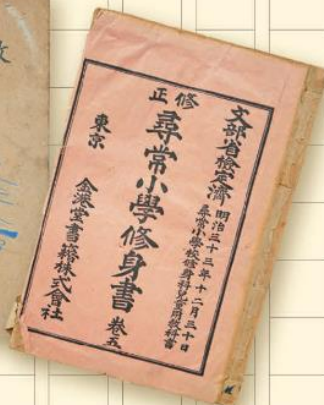 文部省檢定濟
明治三十三年十二月三十日
尋常小學校修身科兒童用教科書
修正
尋常小學修身書 卷五
東京
金港堂書籍株式會社